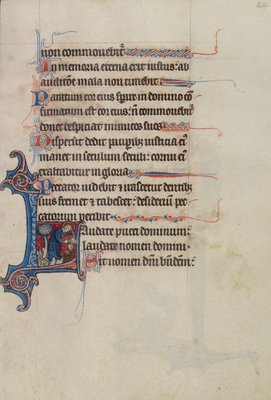 non commovebit᷑
In memoria eterna erit iustus: ab
auditōe mala non timebit.
Paratum cor eius sp̄are in domino cō
firmatum est cor eius: n̄ commovebit᷑
donec despiciat inimicos suos
Dispersit dedit paup̄ibȝ iusticia eiꝰ
manet in seculum seculi: cornu eiꝰ
exaltabitur in gloria
Peccator videbit ⁊ irascetur dentibȝ
suis fremet ⁊ tabescet: desiderium pec
catorum peribit
Laudate pueri dominum:
laudate nomen domini.
Sit nomen dn̄i bn̄dictm̄: